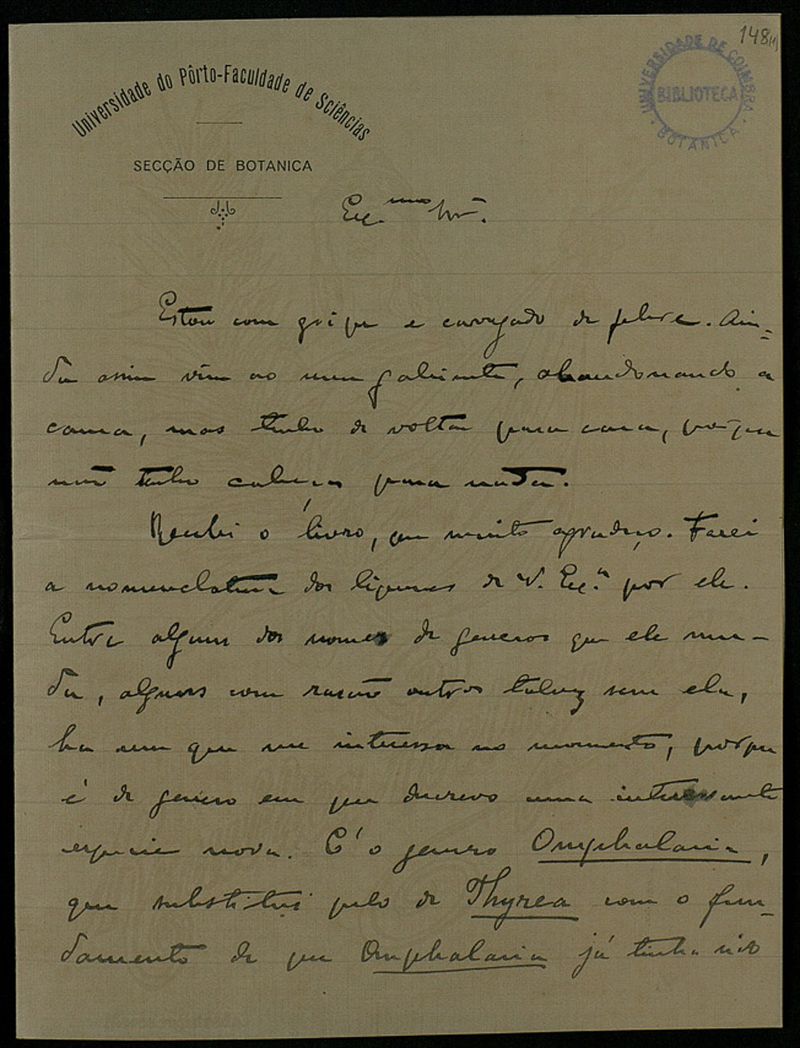 148(1)
UNIVERSIDADE DE COIMBRA
BIBLIOTECA
BOTANICA
Universidade do Pôrto-Faculdade de Sciências
SECÇÃO DE BOTANICA
Exc.mo Snr.
Estou com gripe e carregado de febre. Ain-
da assim vim ao meu gabinete, abandonando a
cama, mas tenho de voltar para casa, porque
não tenho cabeça para nada.
Recebi o livro, que muito agradeço. Farei
a nomenclatura dos liquenes de V. Exc.a por ele.
Entre alguns dos nomes de generos que ele mu-
da, alguns com rasão outros talvez sem ela,
ha um que me interessa no momento, porque
é de genero em que descrevo uma interessante
especie nova. E' o genero Omphalaria,
que substitui pelo de Thyrea com o fun-
damento de que Omphalaria já tinha sido